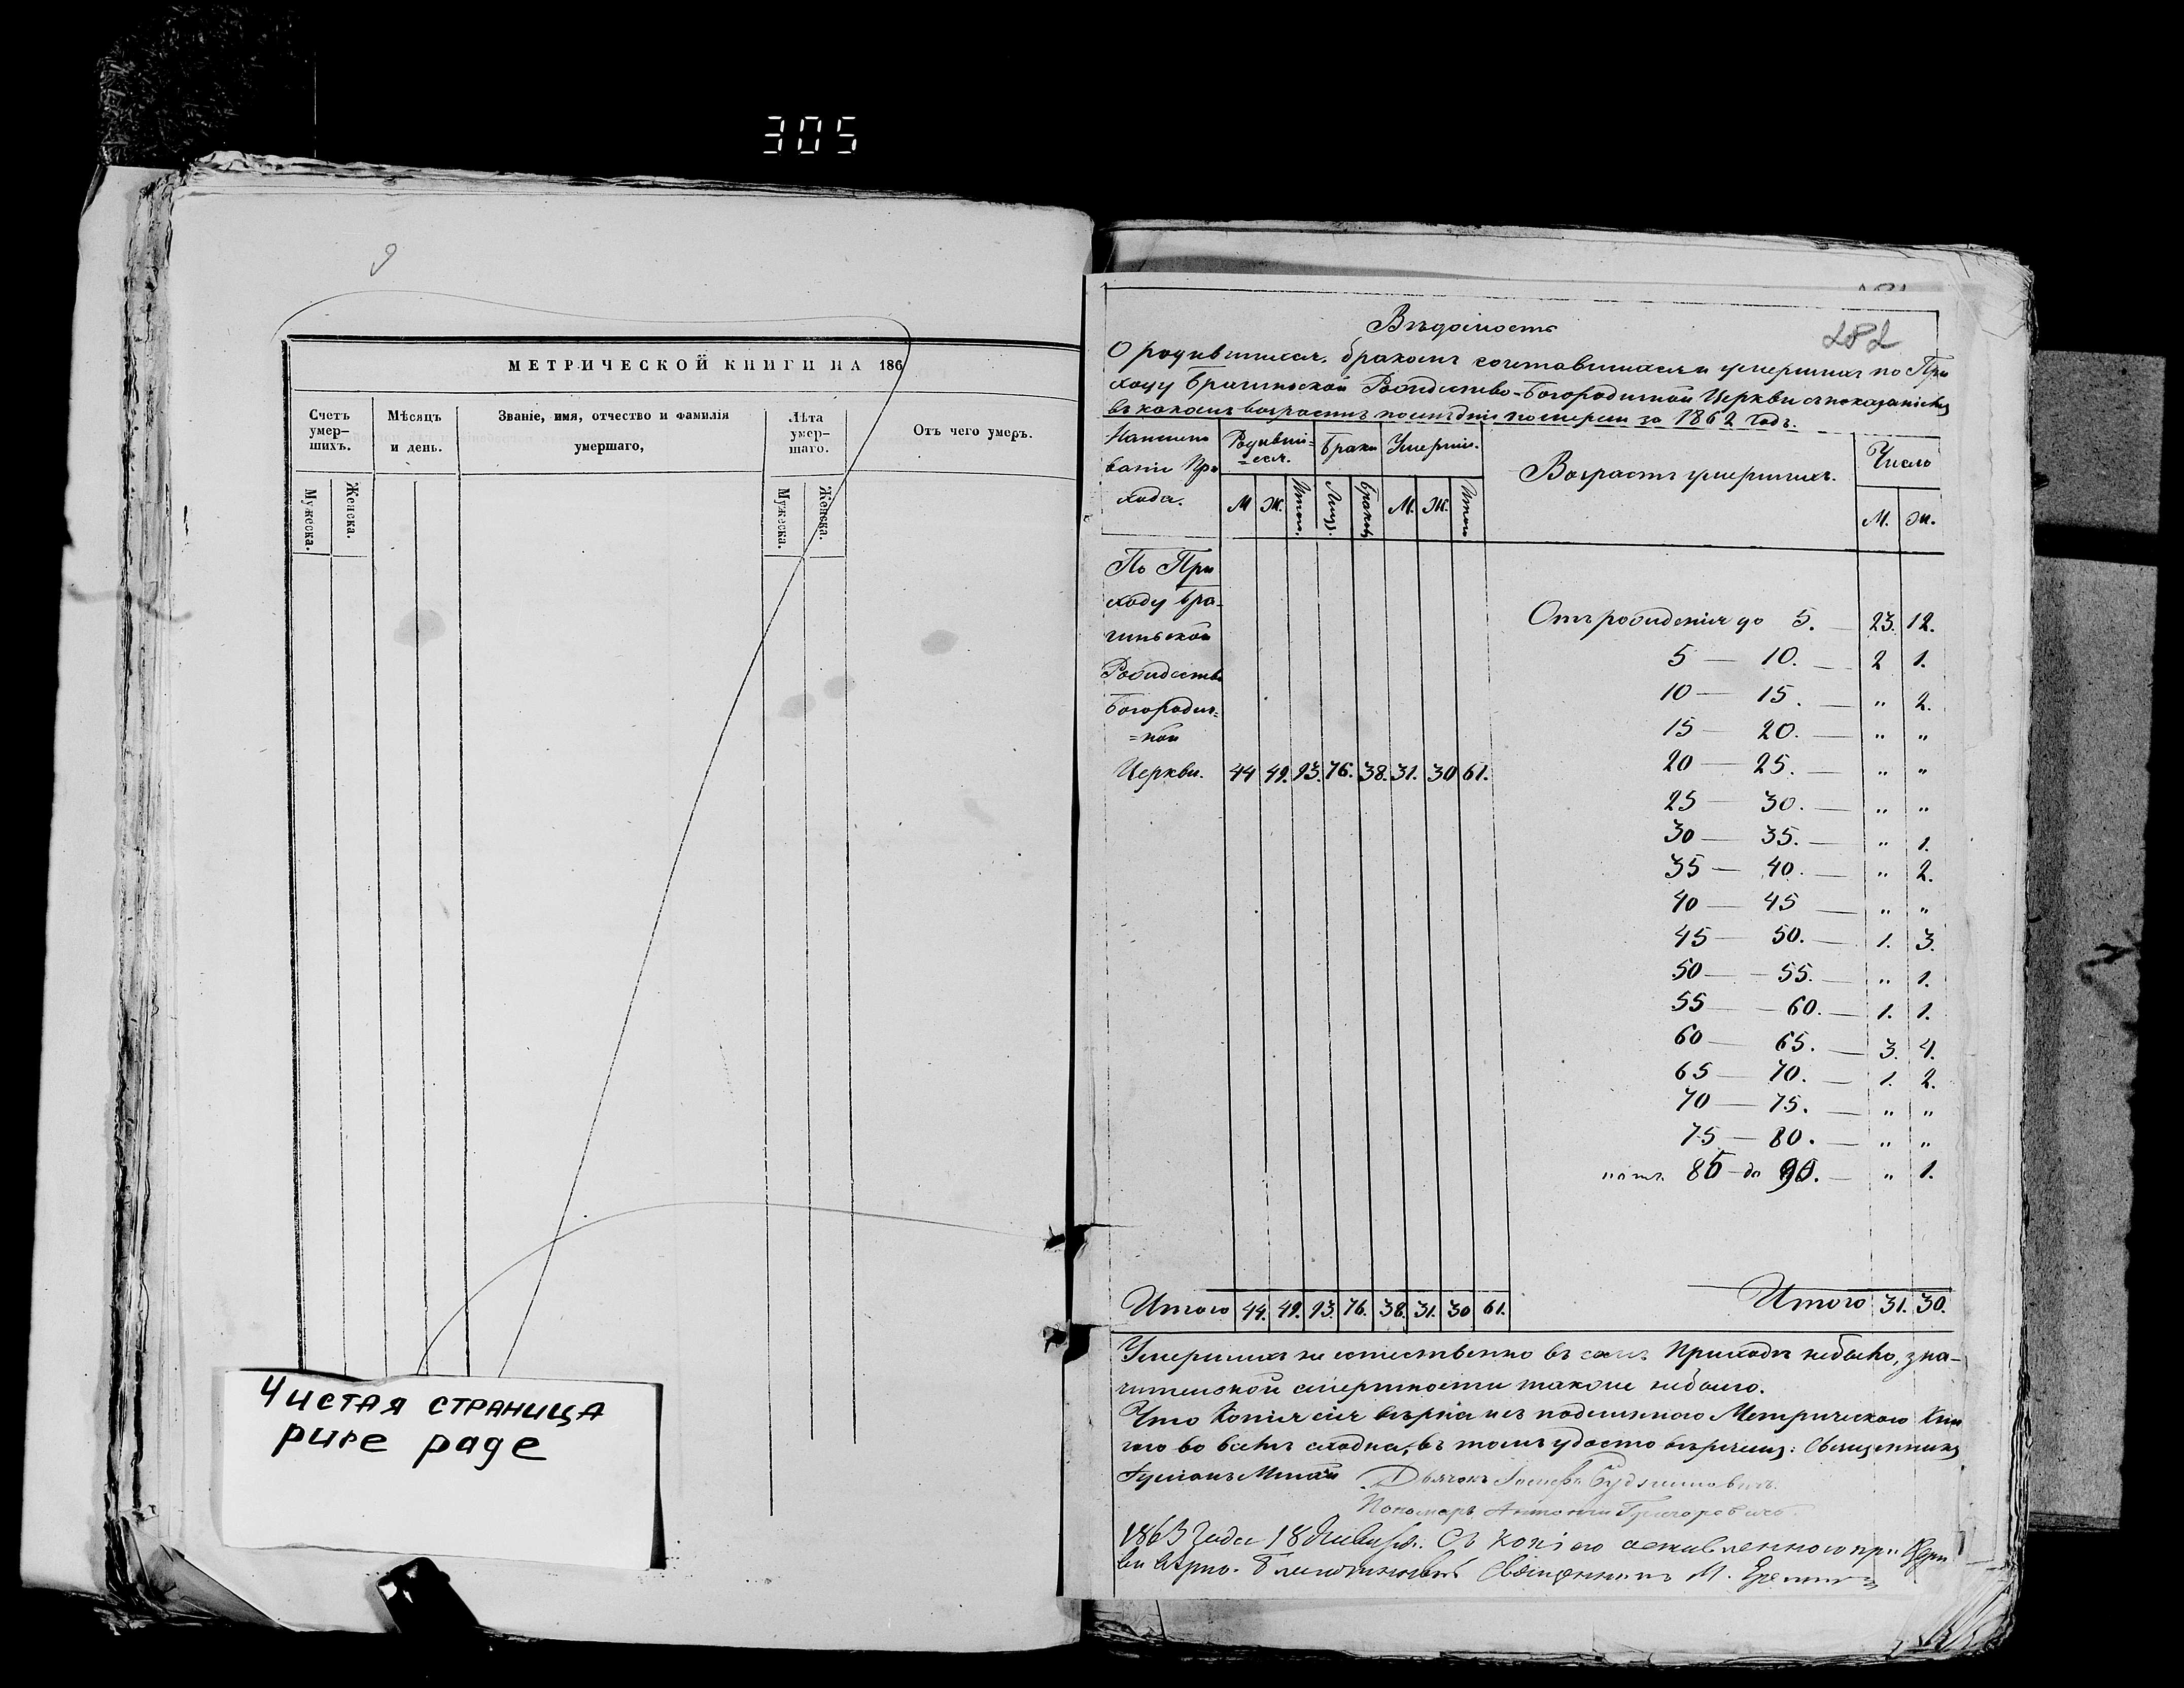 305
МЕТРИЧЕСКОЙ КНИГИ НА 186
Счетъ умер-шихъ.
Мѣсяцъ и день.
Званіе, имя, отчество и фамилія умершаго,
Лѣта умер-шаго.
Отъ чего умеръ.
Мужеска.
Женска.
Мужеска.
Женска.
Чистая страница
pure page
282
Вѣдомость
О родившихся, бракомъ сочетавшихся и умершихъ по При
ходу Брагинской Рождество-Богородичной Церкви съ показаніемъ
въ какомъ возрастѣ послѣдніе померли за 1862 годъ.
Наимено
ваніе При
хода.
Родивші=
=еся.
Браки
Умершіе.
Возрастъ умершихъ.
Число
М Ж. Итого. Лицъ. Браковъ М. Ж. Итого
М. Ж.
По При
ходу Бра-
гинской
Рождество
Богородич=
=ной
Церкви. 44 49. 93. 76. 38. 31. 30 61.
Отъ рожденія до 5. — 23. 12.
5 — 10. — 2 1.
10 — 15. — " 2.
15 — 20. — " "
20 — 25. — " "
25 — 30. — " "
30 — 35. — " 1.
35 — 40. — " 2.
40 — 45 — " "
45 — 50. — 1. 3.
50 — 55. — " 1.
55 — 60. — 1. 1.
60 — 65. — 3. 4.
65 — 70. — 1. 2.
70 — 75. — " "
75 — 80. — " "
85 до 90. — " 1.
Итого 44. 49. 93. 76. 38. 31. 30 61.
Итого 31. 30.
Умершихъ не естественно въ семъ Приходѣ небыло, зна-
чительной смертности также небыло.
Что копія сія вѣрна и съ подлинною Метрическою Кни
гою во всемъ сходна, въ томъ удостовѣряемъ: Священникъ
Дьячокъ Іосифъ
Пономарь Антоній Григоровичъ.
1863 года 18 Января. Съ копіею оставленною при Церк
ви вѣрно. Благочинный Священникъ М.